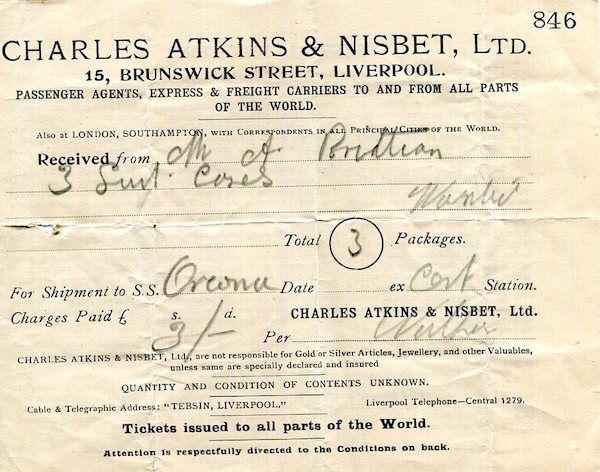 846
CHARLES ATKINS & NISBET, LTD.
15, BRUNSWICK STREET, LIVERPOOL.
PASSENGER AGENTS, EXPRESS & FREIGHT CARRIERS TO AND FROM ALL PARTS
OF THE WORLD.
Also at LONDON, SOUTHAMPTON, WITH CORRESPONDENTS IN ALL PRINCIPAL CITIES OF THE WORLD.
Received from A.
3 Suit Cases
Total 3 Packages.
For Shipment to S.S. Date ex Station.
Charges Paid £ s. d. CHARLES ATKINS & NISBET, Ltd.
3/- Per
CHARLES ATKINS & NISBET, Ltd., are not responsible for Gold or Silver Articles, Jewellery, and other Valuables,
unless same are specially declared and insured
QUANTITY AND CONDITION OF CONTENTS UNKNOWN.
Cable & Telegraphic Address: "TEBSIN, LIVERPOOL." Liverpool Telephone—Central 1279.
Tickets issued to all parts of the World.
Attention is respectfully directed to the Conditions on back.